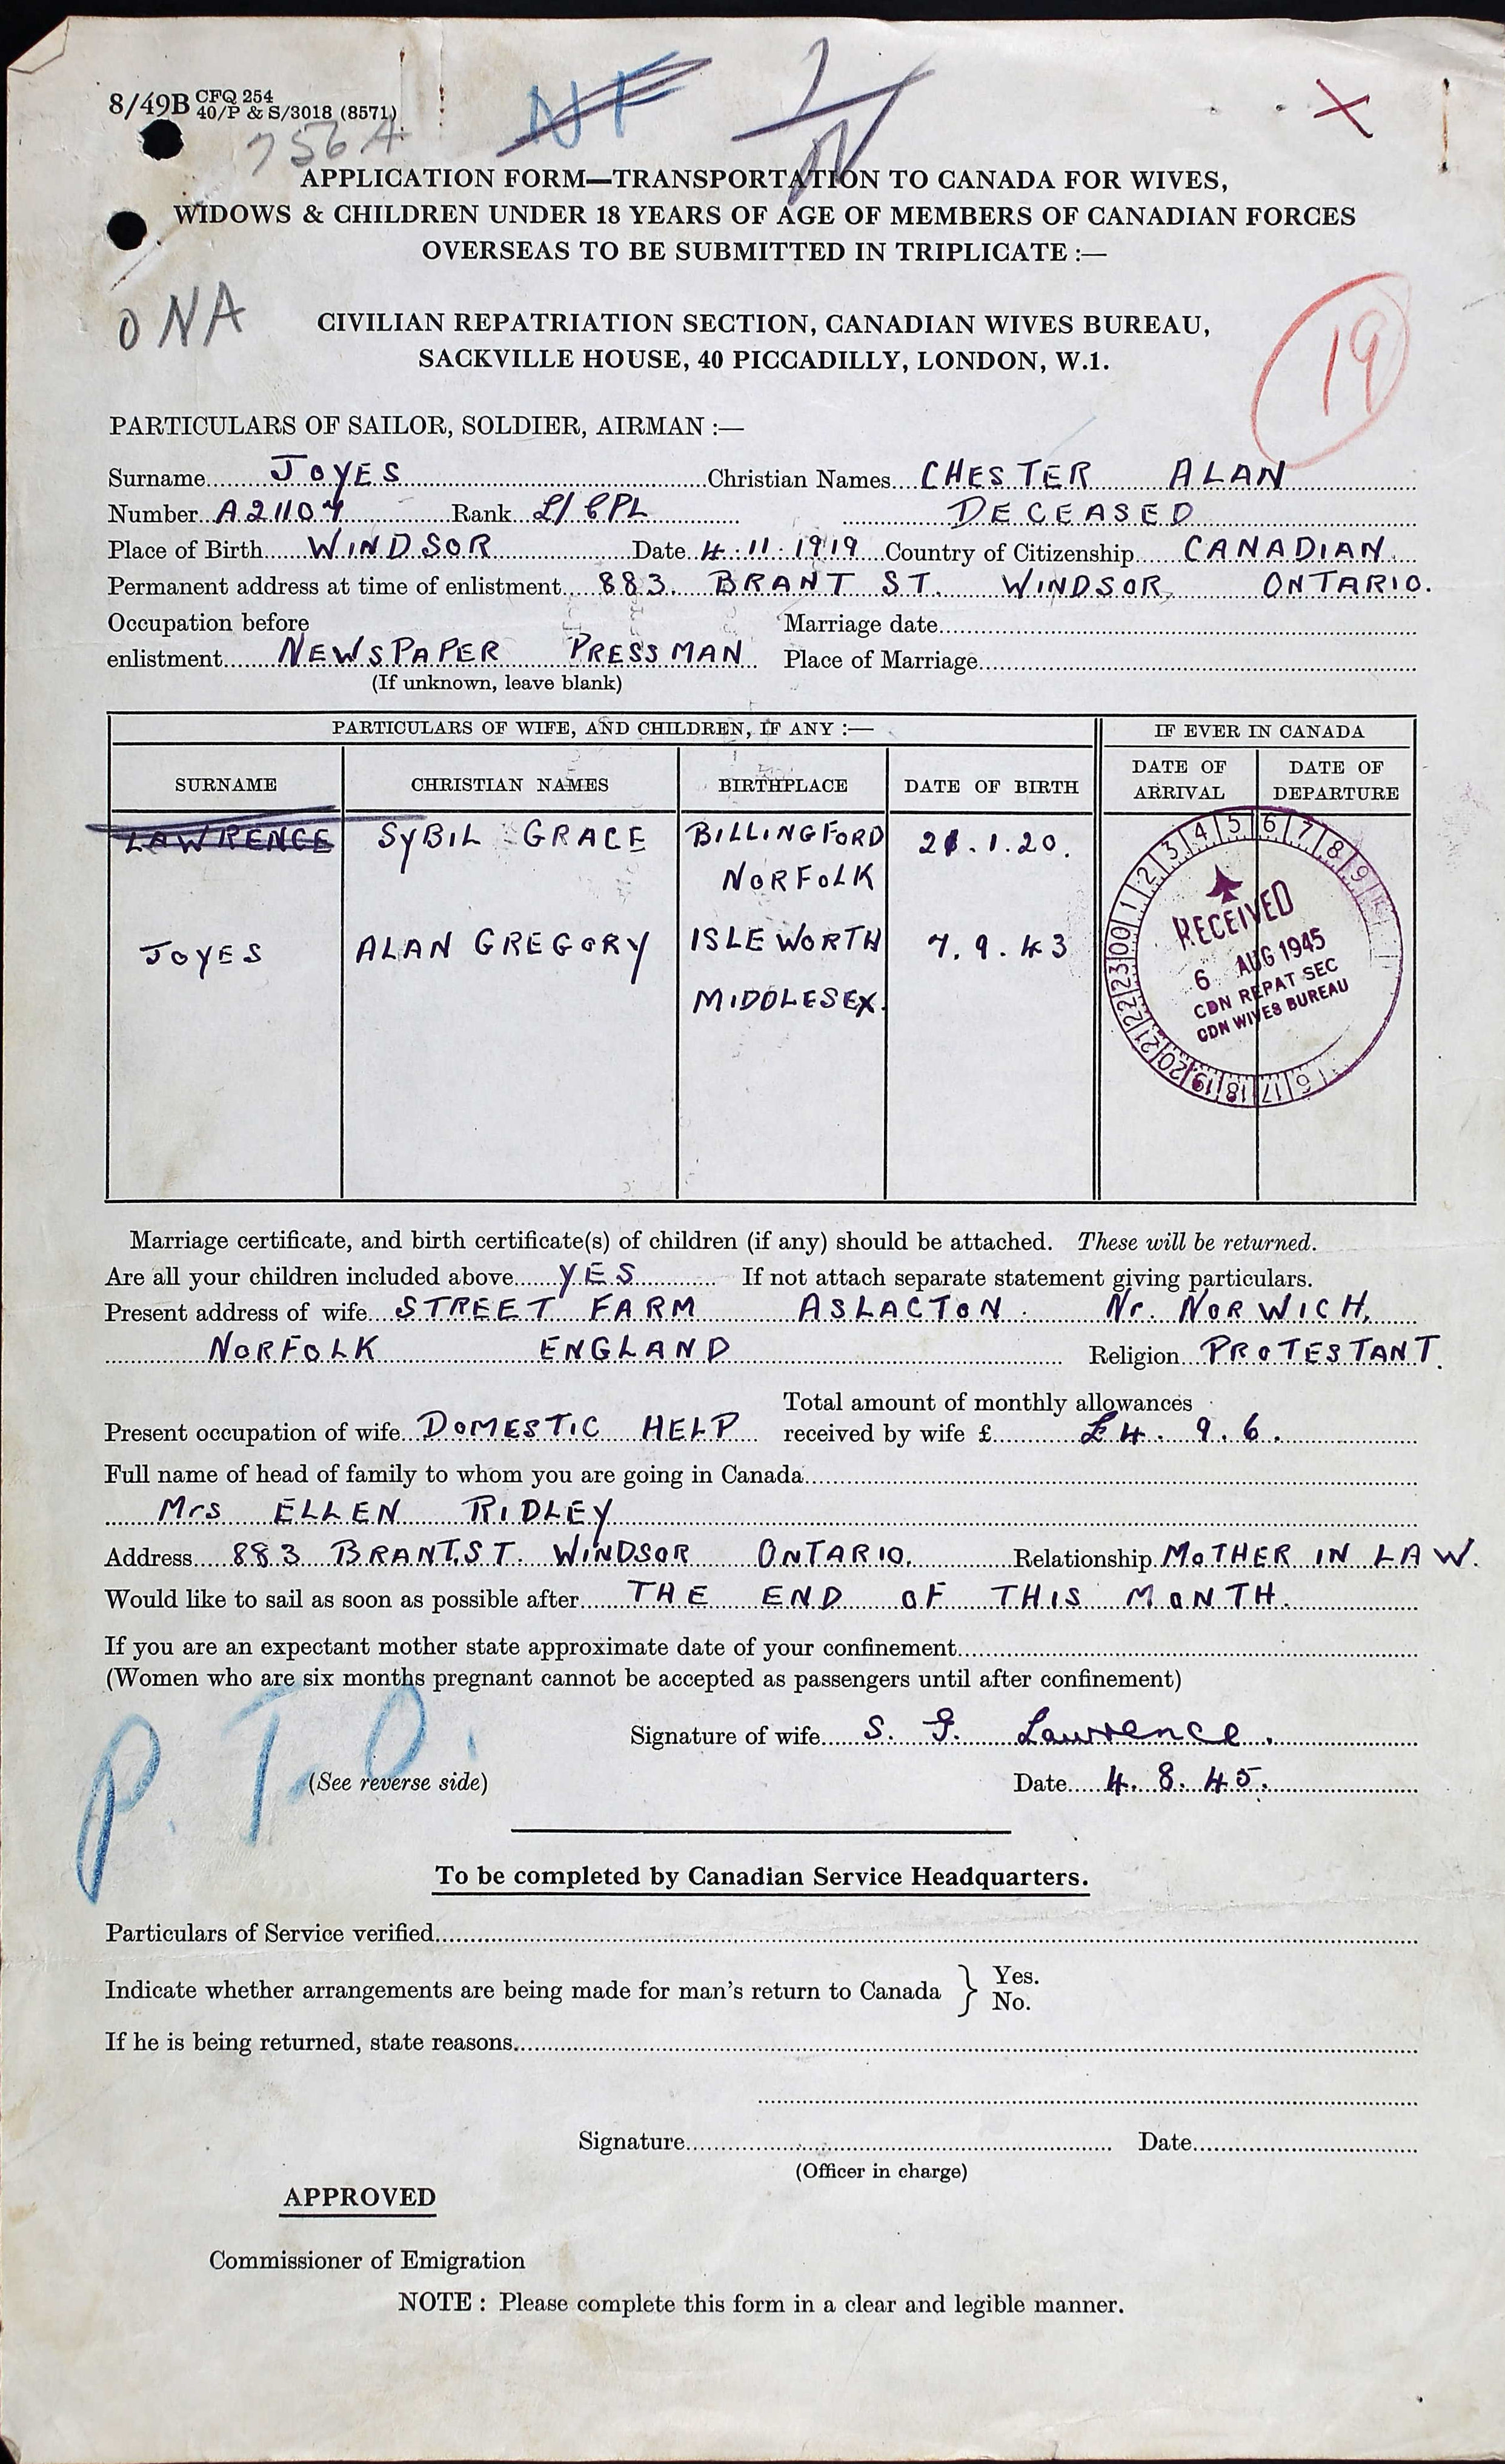 8/49B CFQ 254
40/P & S/3018 (8571)
NF
1/N
X
756A
APPLICATION FORM—TRANSPORTATION TO CANADA FOR WIVES,
WIDOWS & CHILDREN UNDER 18 YEARS OF AGE OF MEMBERS OF CANADIAN FORCES
OVERSEAS TO BE SUBMITTED IN TRIPLICATE :—
ONA
19
CIVILIAN REPATRIATION SECTION, CANADIAN WIVES BUREAU,
SACKVILLE HOUSE, 40 PICCADILLY, LONDON, W.1.
PARTICULARS OF SAILOR, SOLDIER, AIRMAN :—
Surname JOYES Christian Names CHESTER ALAN
Number A21107 Rank L/CPL DECEASED
Place of Birth WINDSOR Date 4.11.1919 Country of Citizenship CANADIAN.
Permanent address at time of enlistment 883. BRANT ST. WINDSOR, ONTARIO.
Occupation before Marriage date
enlistment NEWSPAPER PRESSMAN Place of Marriage
(If unknown, leave blank)
PARTICULARS OF WIFE, AND CHILDREN, IF ANY :— IF EVER IN CANADA
SURNAME CHRISTIAN NAMES BIRTHPLACE DATE OF BIRTH DATE OF ARRIVAL DATE OF DEPARTURE
LAWRENCE SYBIL GRACE BILLINGFORD 21.1.20.
NORFOLK
JOYES ALAN GREGORY ISLEWORTH 7.9.43
MIDDLESEX.
RECEIVED
6 AUG 1945
CDN REPAT SEC
CDN WIVES BUREAU
00 1 2 3 4 5 6 7 8 9 16 17 18 19 20 21 22 23
Marriage certificate, and birth certificate(s) of children (if any) should be attached. These will be returned.
Are all your children included above YES If not attach separate statement giving particulars.
Present address of wife STREET FARM ASLACTON. Nr. NORWICH,
NORFOLK ENGLAND Religion PROTESTANT.
Total amount of monthly allowances
Present occupation of wife DOMESTIC HELP received by wife £ £4. 9. 6.
Full name of head of family to whom you are going in Canada
Mrs ELLEN RIDLEY
Address 883 BRANT.ST. WINDSOR ONTARIO. Relationship MOTHER IN LAW.
Would like to sail as soon as possible after THE END OF THIS MONTH.
If you are an expectant mother state approximate date of your confinement
(Women who are six months pregnant cannot be accepted as passengers until after confinement)
P.T.O.
Signature of wife S. G. Lawrence.
(See reverse side) Date 4. 8. 45.
To be completed by Canadian Service Headquarters.
Particulars of Service verified
Indicate whether arrangements are being made for man's return to Canada } Yes.
No.
If he is being returned, state reasons
Signature Date
(Officer in charge)
APPROVED
Commissioner of Emigration
NOTE : Please complete this form in a clear and legible manner.